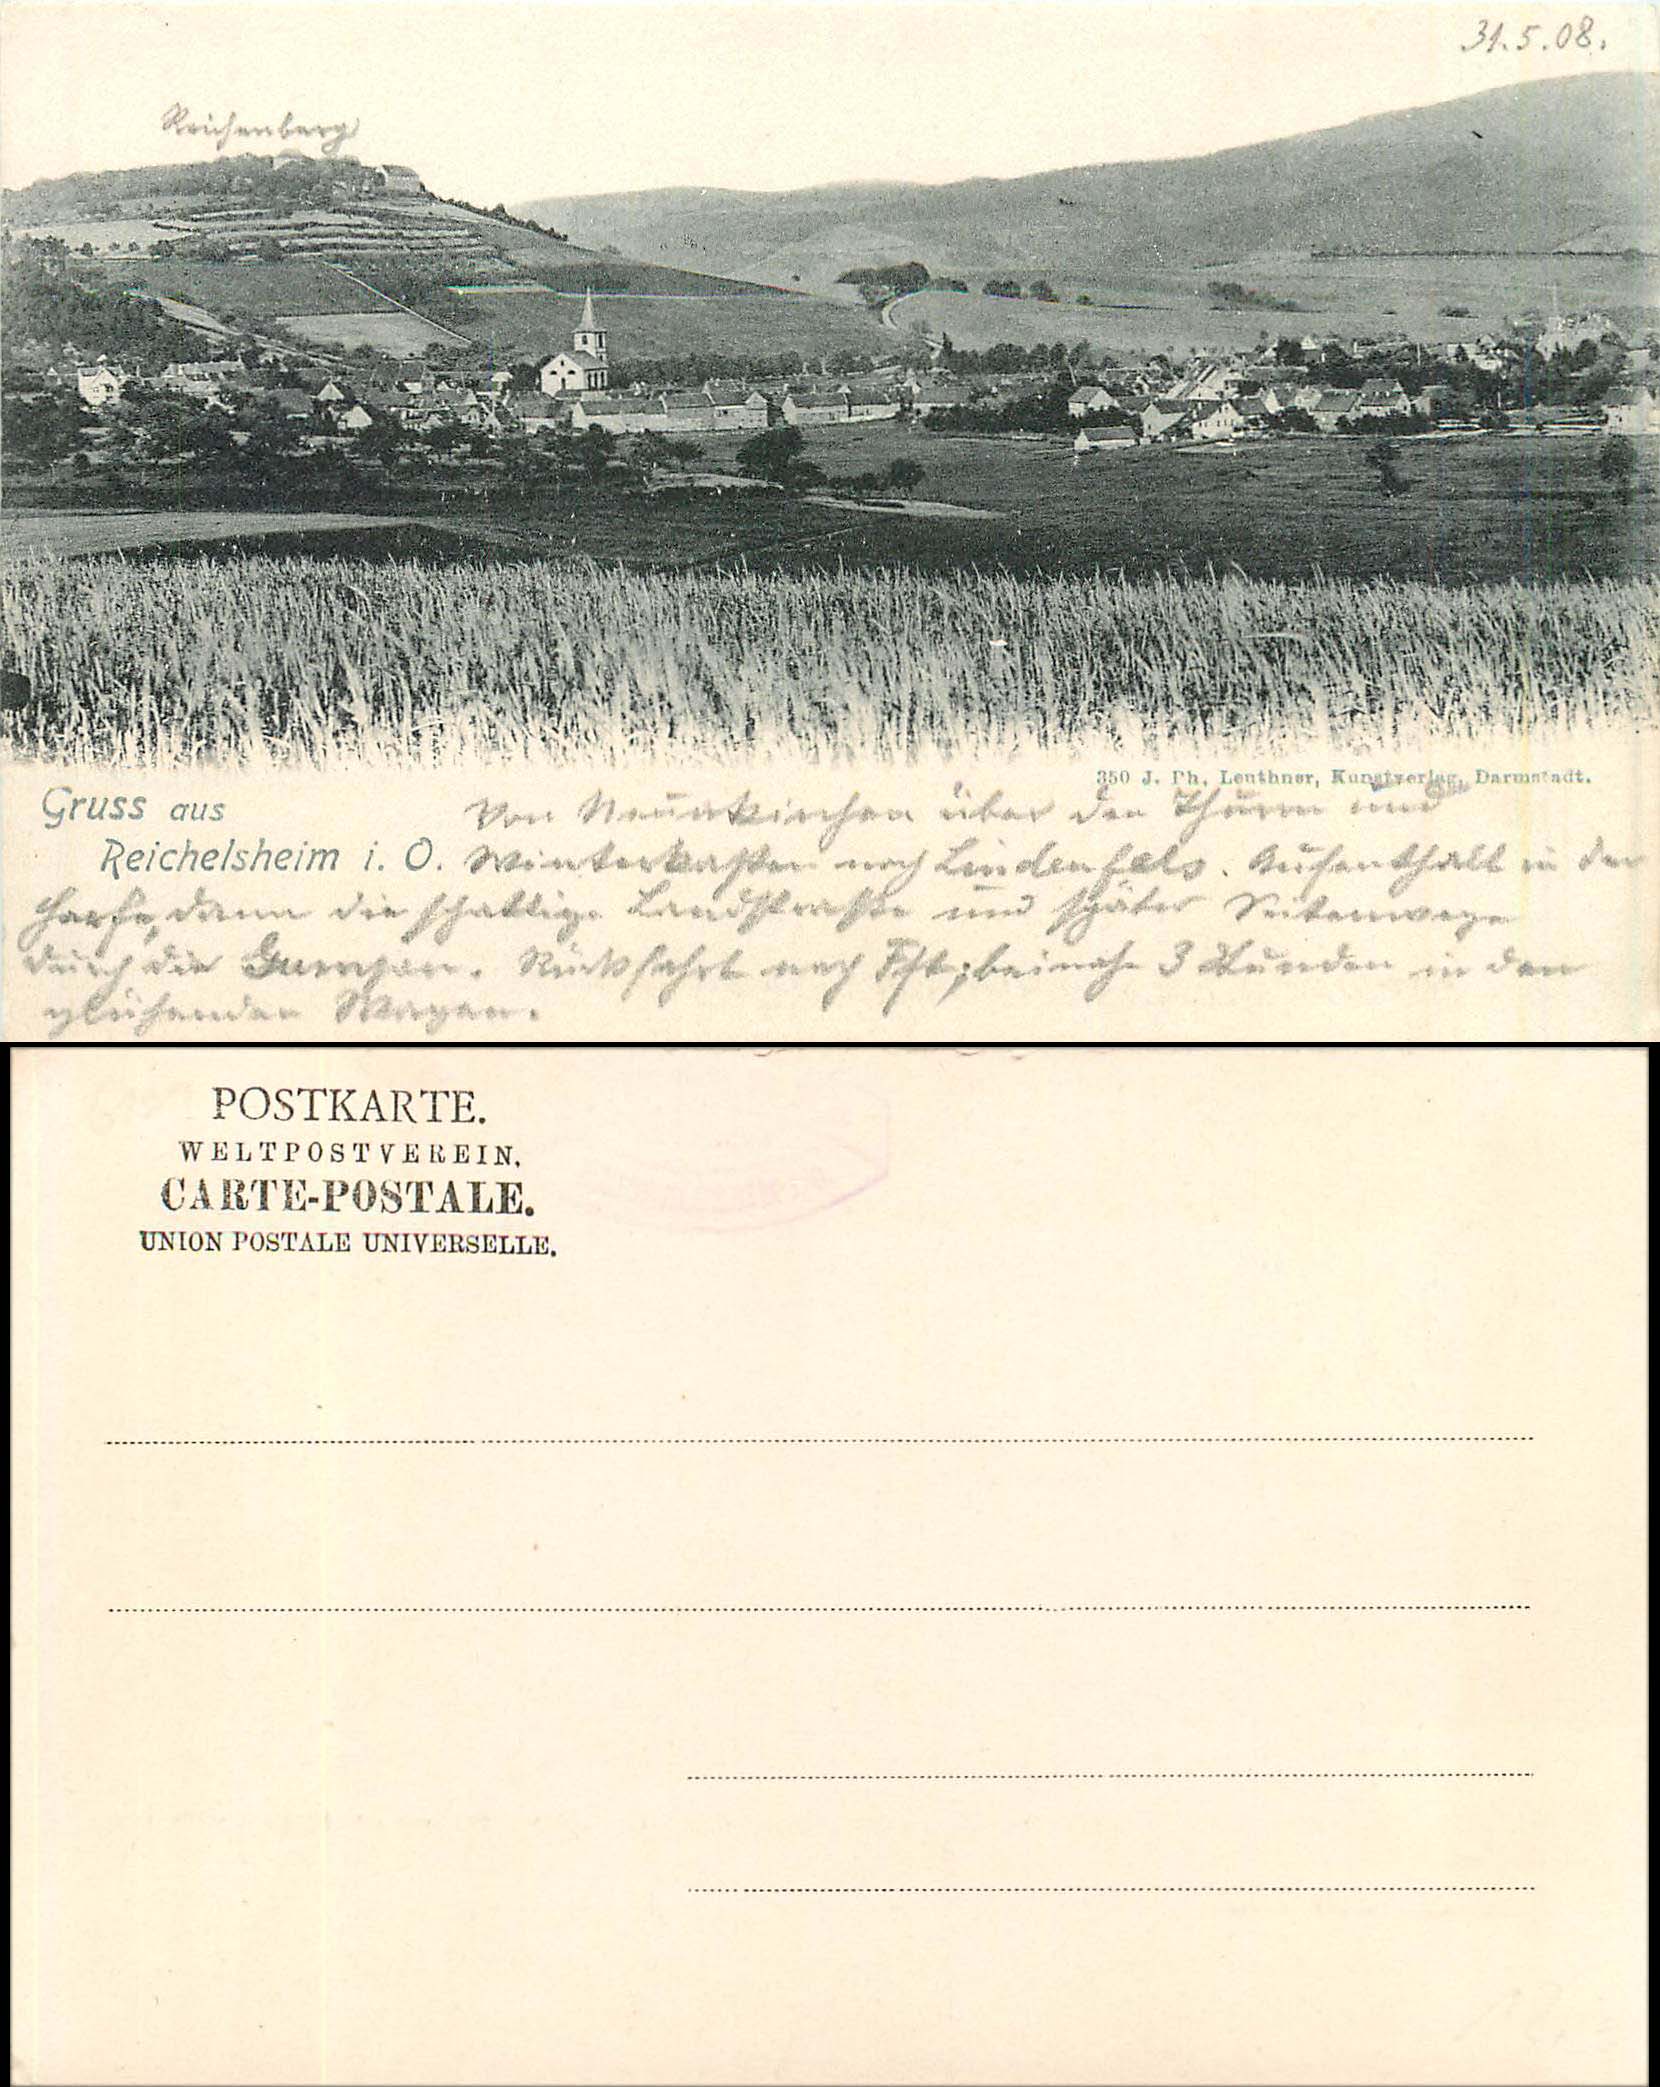 31.5.08.
Reichenberg
350 J. Ph. Leuthner, Kunstverlag, Darmstadt.
Gruss aus
Reichelsheim i. O.
Von Neunkirchen über den Thurm und
Winterkasten nach Lindenfels. Aufenthalt in der
Harfe, dann die schattige Landstraße und später Seitenwege
durch die. Rückfahrt nach Fft; beinahe 3 Stunden in den
glühenden Wagen.
POSTKARTE.
WELTPOSTVEREIN.
CARTE-POSTALE.
UNION POSTALE UNIVERSELLE.